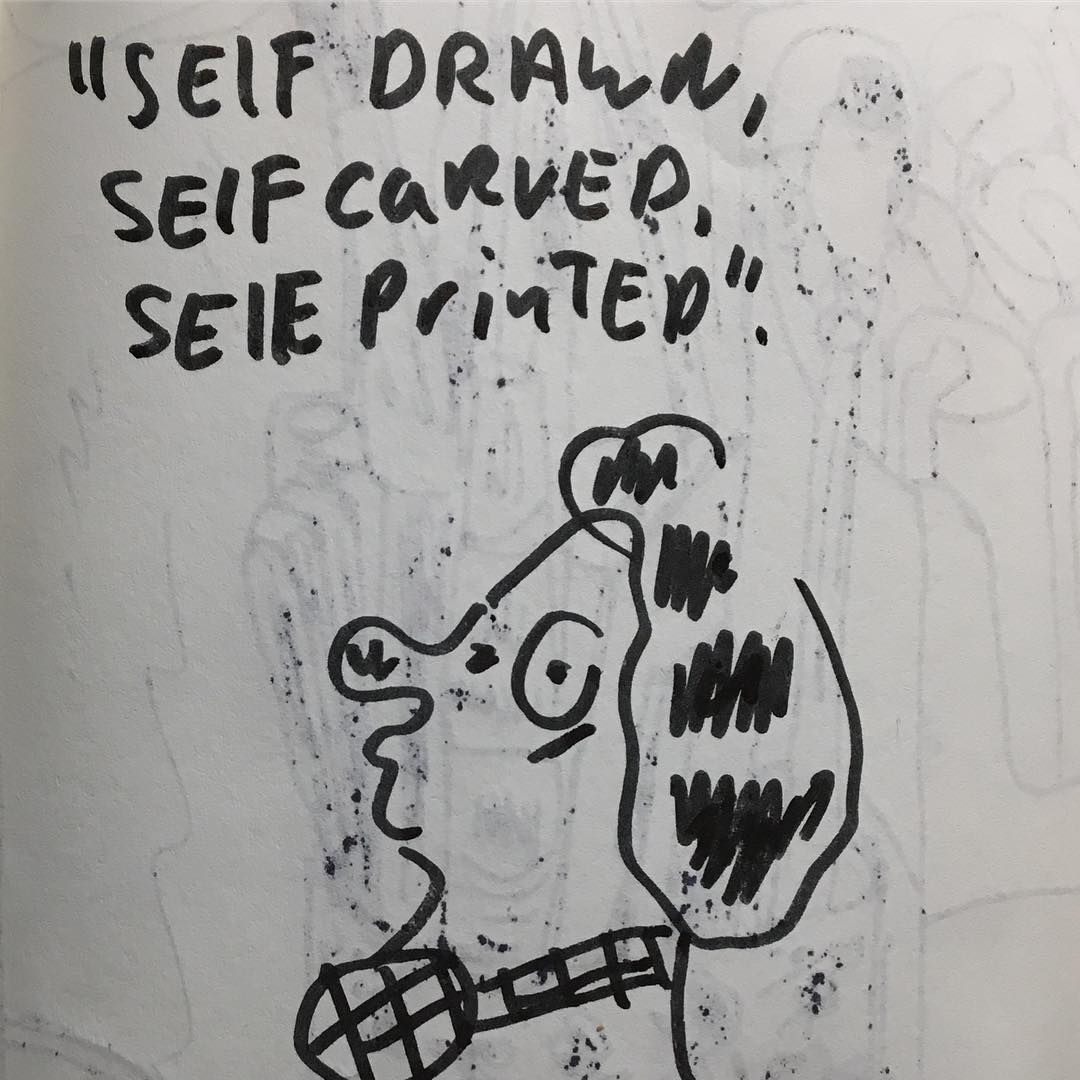 "SElF DRAWN,
SElF CaRVED,
SElE PrinTED".